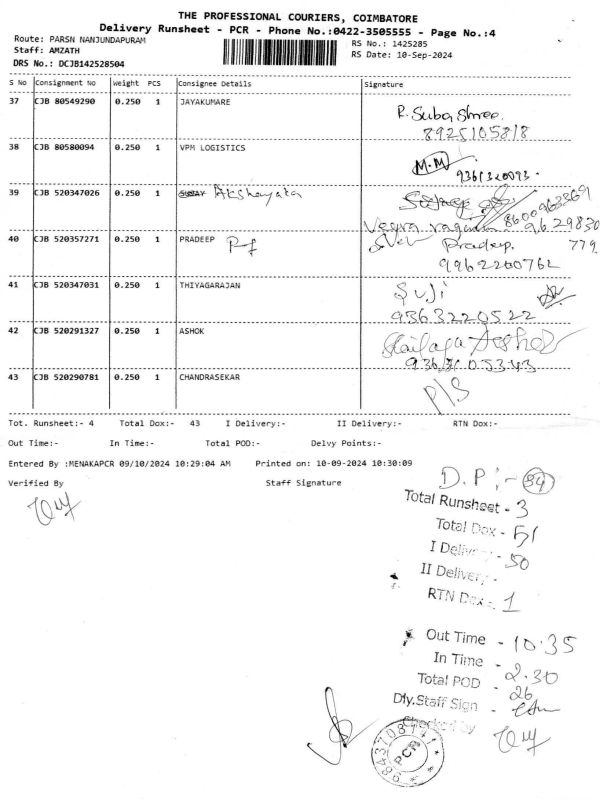 THE PROFESSIONAL COURIERS, COIMBATORE
Delivery Runsheet - PCR - Phone No.:0422-3505555 - Page No.:4
Route: PARSN NANJUNDAPURAM
RS No.: 1425285
Staff: AMZATH
RS Date: 10-Sep-2024
DRS No.: DCJB142528504
S No Consignment No Weight PCS Consignee Details Signature
37 CJB 80549290 0.250 1 JAYAKUMARE
R. Suba Shree.
8925105818
38 CJB 80580094 0.250 1 VPM LOGISTICS
M.M
9361320093.
39 CJB 520347026 0.250 1 Akshayata
8600963869
9629830
779
40 CJB 520357271 0.250 1 PRADEEP
Pradeep.
9962200762
41 CJB 520347031 0.250 1 THIYAGARAJAN
Suji
9363220522
42 CJB 520291327 0.250 1 ASHOK
43 CJB 520290781 0.250 1 CHANDRASEKAR
P/S
Tot. Runsheet:- 4 Total Dox:- 43 I Delivery:- II Delivery:- RTN Dox:-
Out Time:- In Time:- Total POD:- Delvy Points:-
Entered By :MENAKAPCR 09/10/2024 10:29:04 AM Printed on: 10-09-2024 10:30:09
Verified By Staff Signature
D.P :-
Total Runsheet - 3
Total Dox - 51
I Delivery - 50
II Delivery -
RTN Dox - 1
Out Time - 10.35
In Time - 2.30
Total POD - 26
Dly.Staff Sign -
Checked by
9843708141
PCR